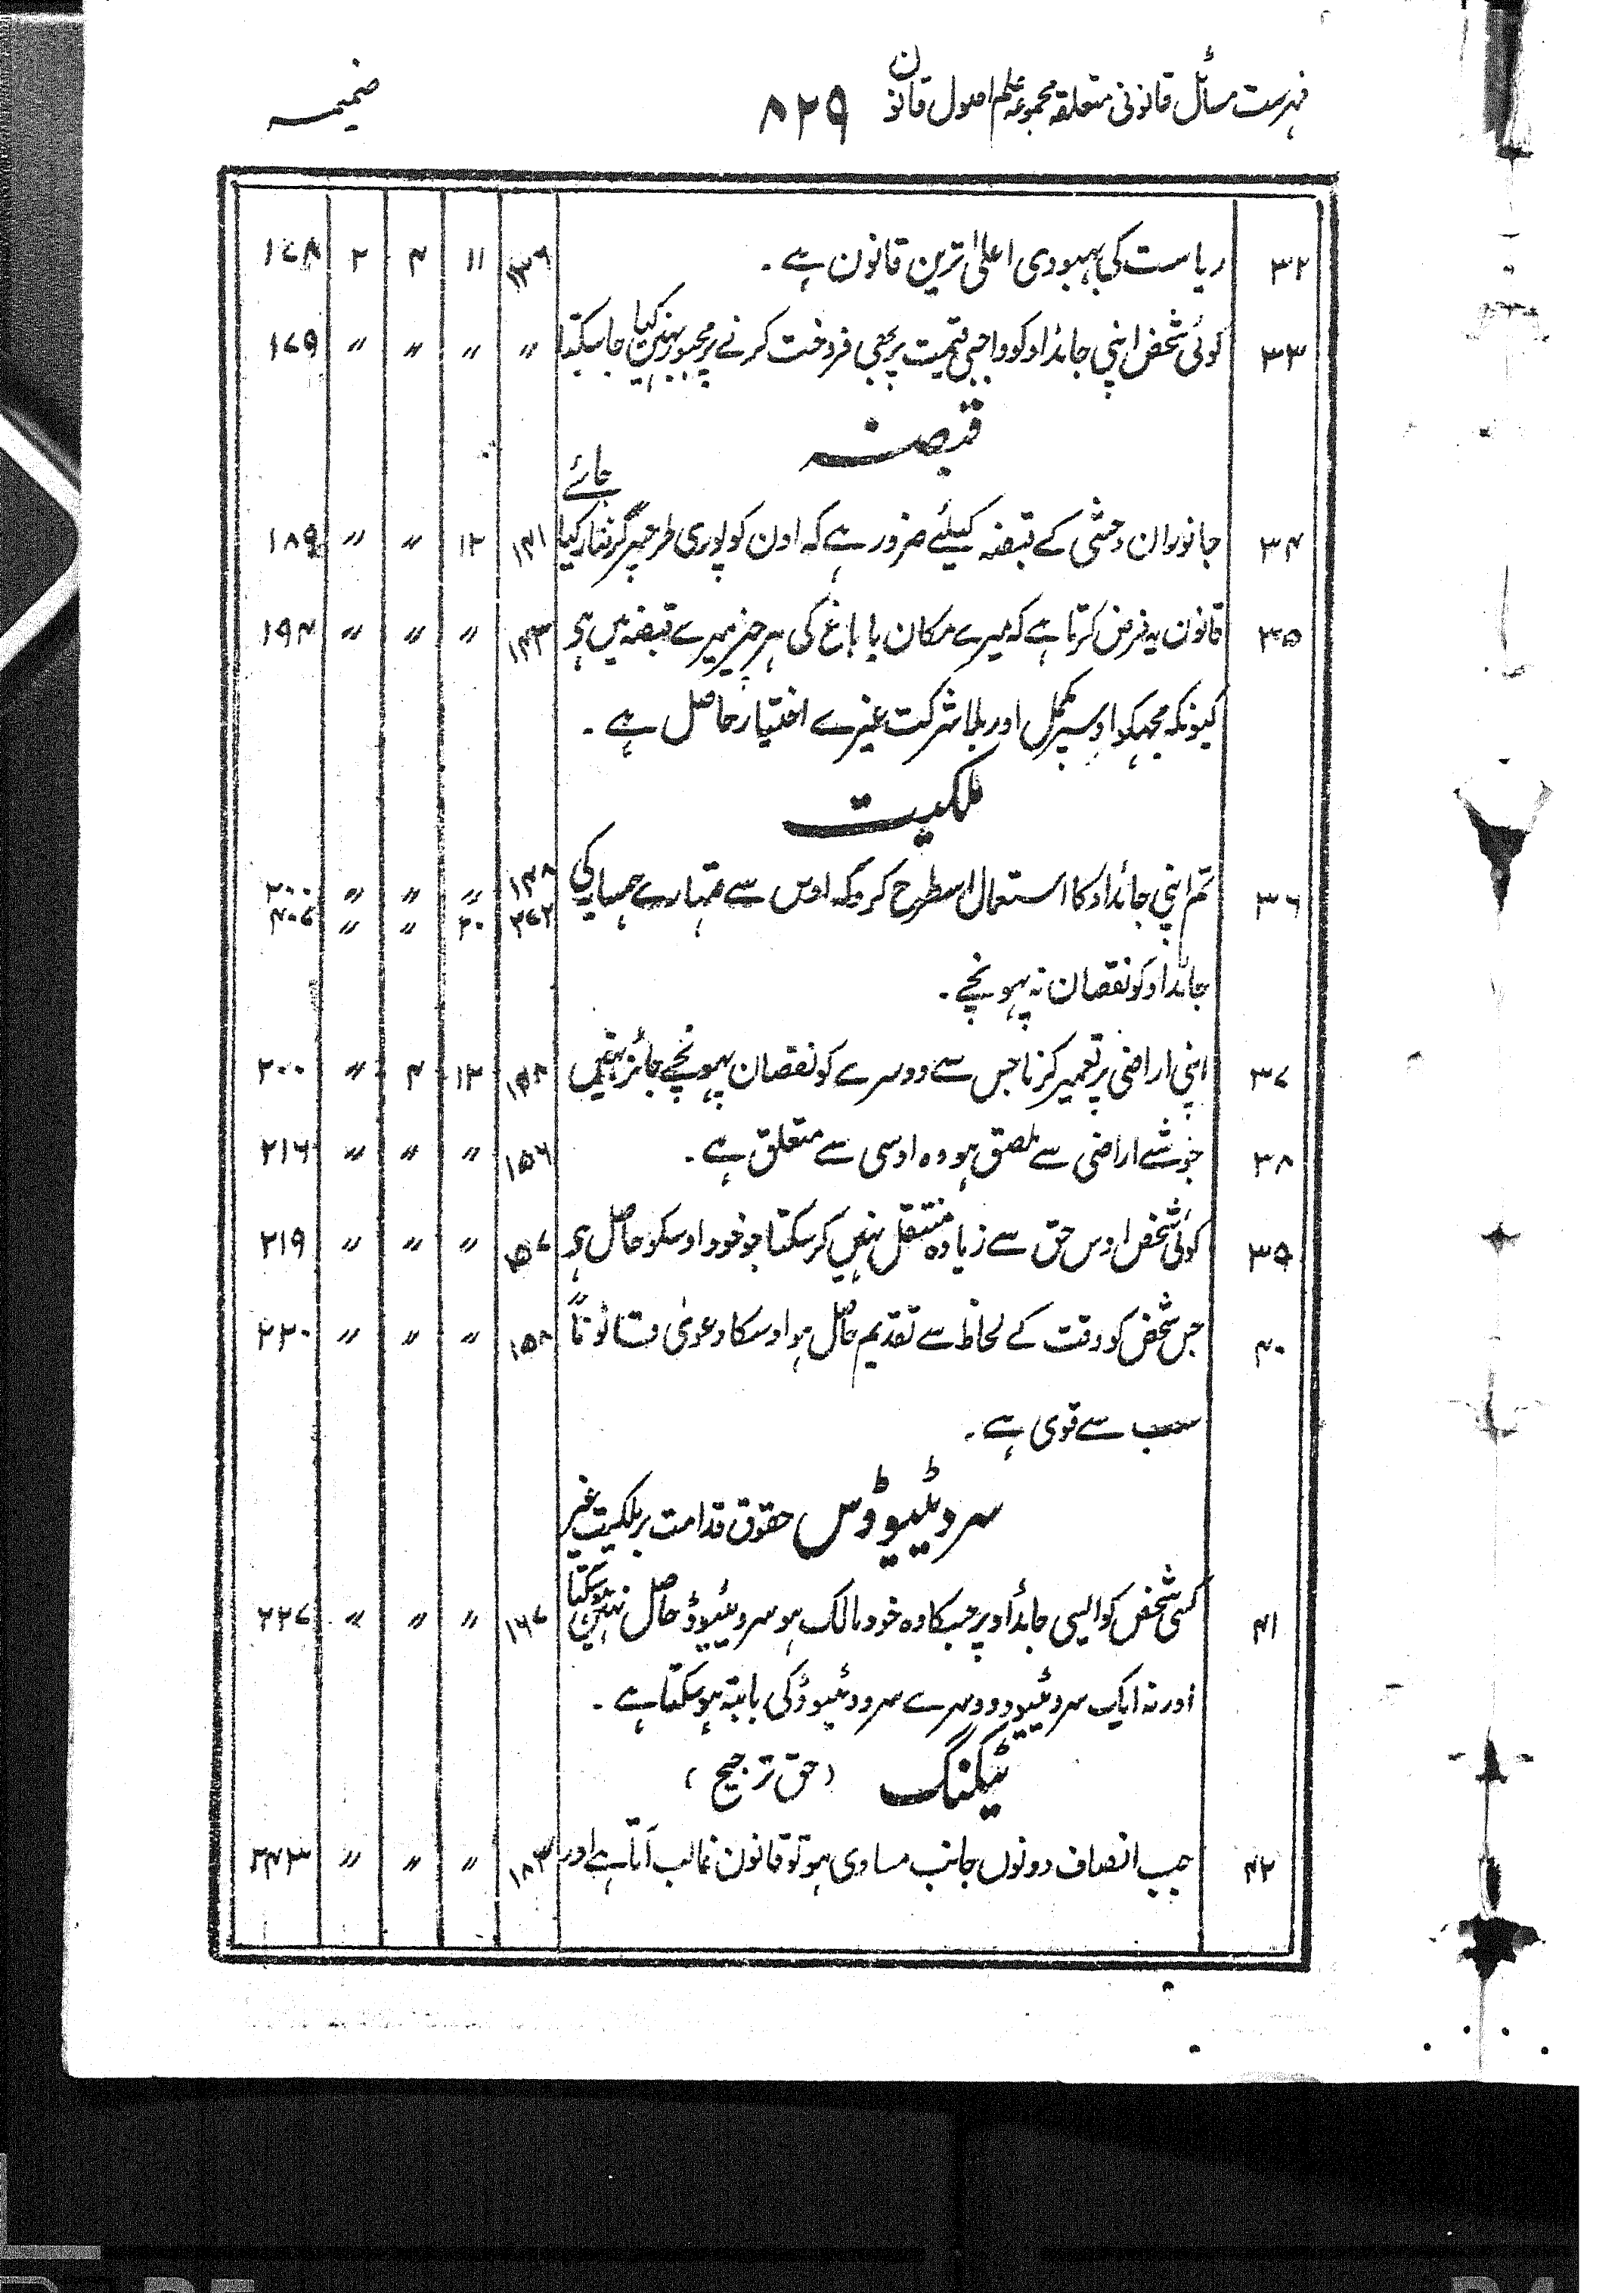 فہرست مسائل قانونی متعلقہ مجموعہ علم اصول قانون ۸۲۹ ضمیمہ
۳۲ ریاست کی بہبودی اعلیٰ ترین قانون ہے ۔ ۱۳۶ ۱۱ ۴ ۲ ۱۷۸
۳۳ کوئی شخص اپنی جائداد کو واجبی قیمت پر بھی فروخت کرنے پر مجبور نہیں کیا جا سکتا 〃 〃 〃 〃 ۱۷۹
قبضہ
۳۴ جانوران وحشی کے قبضہ کیلئے ضرور ہے کہ اون کو پوری طرح پر گرفتار کیا جائے ۱۴۱ ۱۲ 〃 〃 ۱۸۹
۳۵ قانون یہ فرض کرتا ہے کہ میرے مکان یا باغ کی ہر چیز میرے قبضہ میں ہے ۱۴۳ 〃 〃 〃 ۱۹۴
کیونکہ مجہکو اوسپر مکمل اور بلا شرکت غیرے اختیار حاصل ہے ۔
ملکیت
۳۶ تم اپنی جائداد کا استعمال اسطرح کرو کہ اوس سے تمہارے ہمسایہ کی ۱۴۸ 〃 〃 〃 ۲۰۰
۲۷۲ ۲۰ 〃 〃 ۴۰۷
جائداد کو نقصان نہ پہونچے ۔
۳۷ اپنی اراضی پر تعمیر کرنا جس سے دوسرے کو نقصان پہونچے جائز نہیں ۱۴۸ ۱۲ ۴ 〃 ۲۰۰
۳۸ جو شے اراضی سے ملصق ہو وہ اوسی سے متعلق ہے ۔ ۱۵۶ 〃 〃 〃 ۲۱۶
۳۹ کوئی شخص اوس حق سے زیادہ منتقل نہیں کر سکتا جو خود اوسکو حاصل ہے ۱۵۷ 〃 〃 〃 ۲۱۹
۴۰ جس شخص کو وقت کے لحاظ سے تقدیم حاصل ہو اوسکا دعویٰ قانوناً ۱۵۸ 〃 〃 〃 ۲۲۰
سب سے قوی ہے ۔
سروٹیوڈس حقوق قدامت بر ملکیت غیر
۴۱ کسی شخص کو ایسی جائداد پر جسکا وہ خود مالک ہو سروٹیوڈ حاصل نہیں ہو سکتا ۱۶۷ 〃 〃 〃 ۲۲۷
اور نہ ایک سروٹیوڈ دوسرے سروٹیوڈ کی بابتہ ہو سکتا ہے ۔
ٹیکنگ (حق ترجیح)
۴۲ جب انصاف دونوں جانب مساوی ہو تو قانون غالب آتا ہے اور ۱۸۳ 〃 〃 〃 ۲۴۳